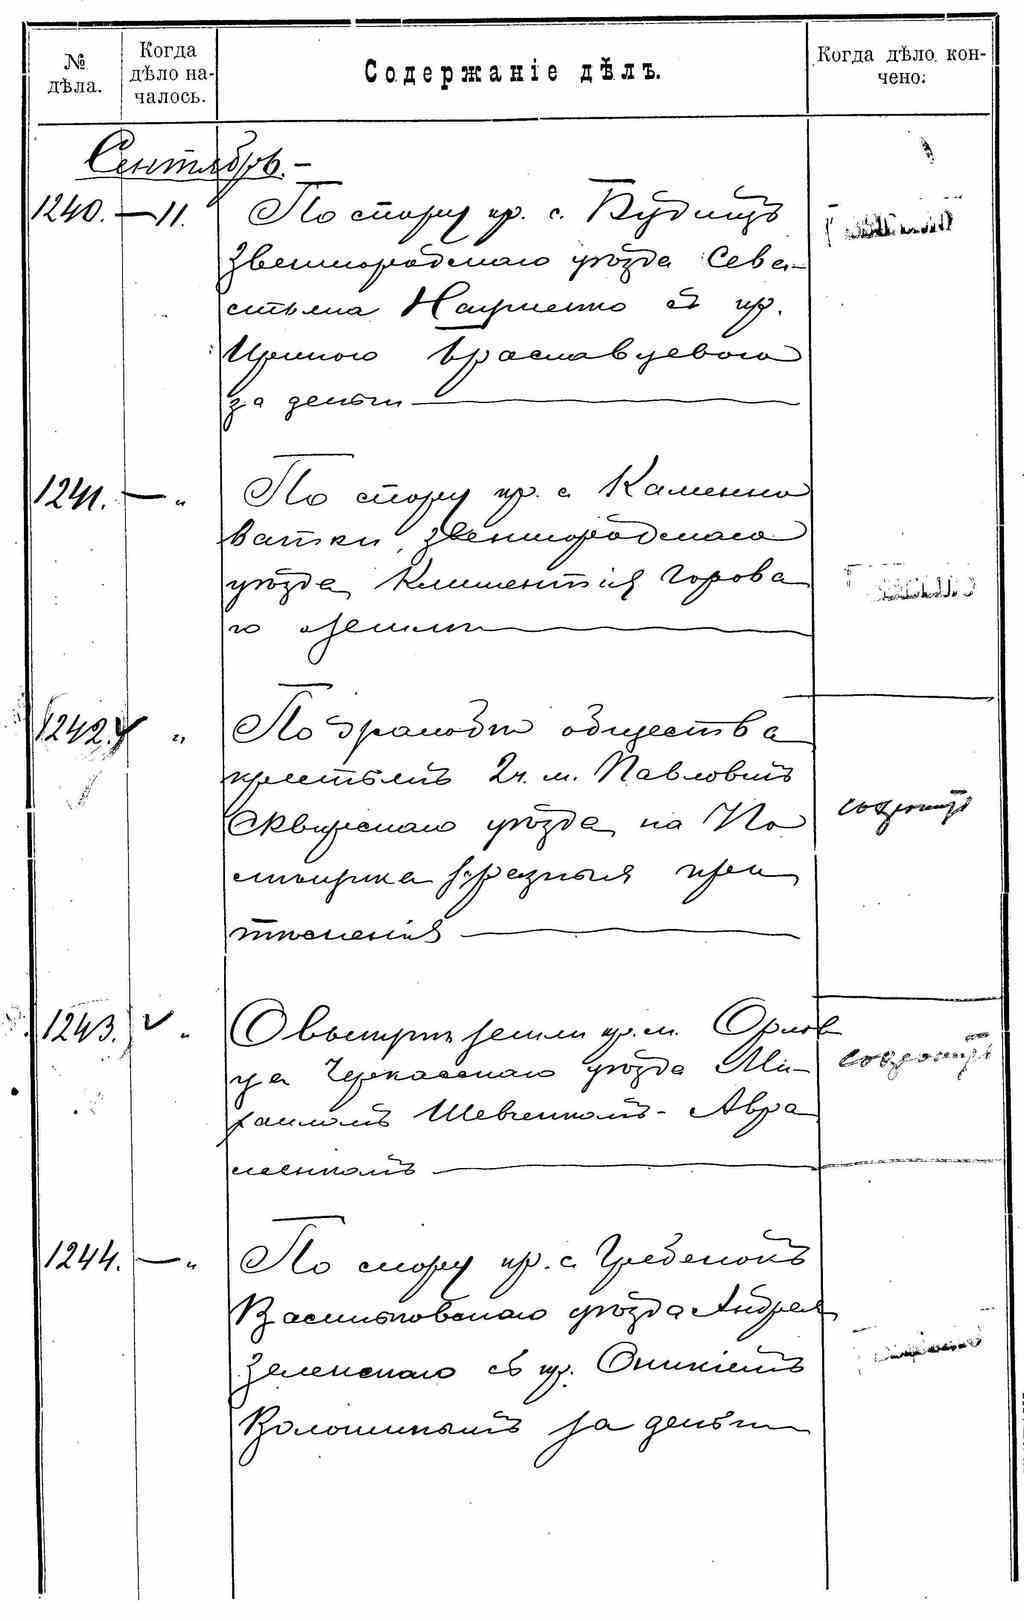 № дѣла.
Когда дѣло началось.
Содержаніе дѣлъ.
Когда дѣло кончено.
Сентябрь.-
1240. — 11. По спору кр. с. Будищъ
Звенигородскаго уѣзда Сева-
стьяна съ кр.
за деньги
1241. — " По спору кр. с. Каменно
ватки, Звенигородскаго
уѣзда Климентія Горова
го землю
1242. " По жалобѣ общества
крестьянъ 2 ч. м. Паволочь
Сквирскаго уѣзда на По
мѣщика за разныя при
тѣсненія
1243. " О выкупѣ земли кр. м. Орлов
ца Черкасскаго уѣзда Ми-
хаиломъ Шевченкомъ-Авра
менкомъ
1244. — " По спору кр. с. Гребенокъ
Васильковскаго уѣзда Андрея
Зеленскаго съ кр. Оникіемъ
Волошинымъ за деньги